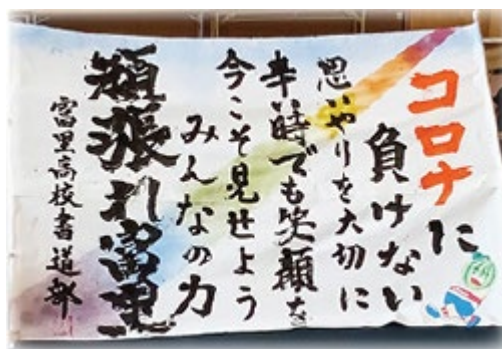 コロナに
負けない
思いやりを大切に
辛い時でも笑顔を
今こそ見せよう
みんなの力
頑張れ富里
富里高校書道部